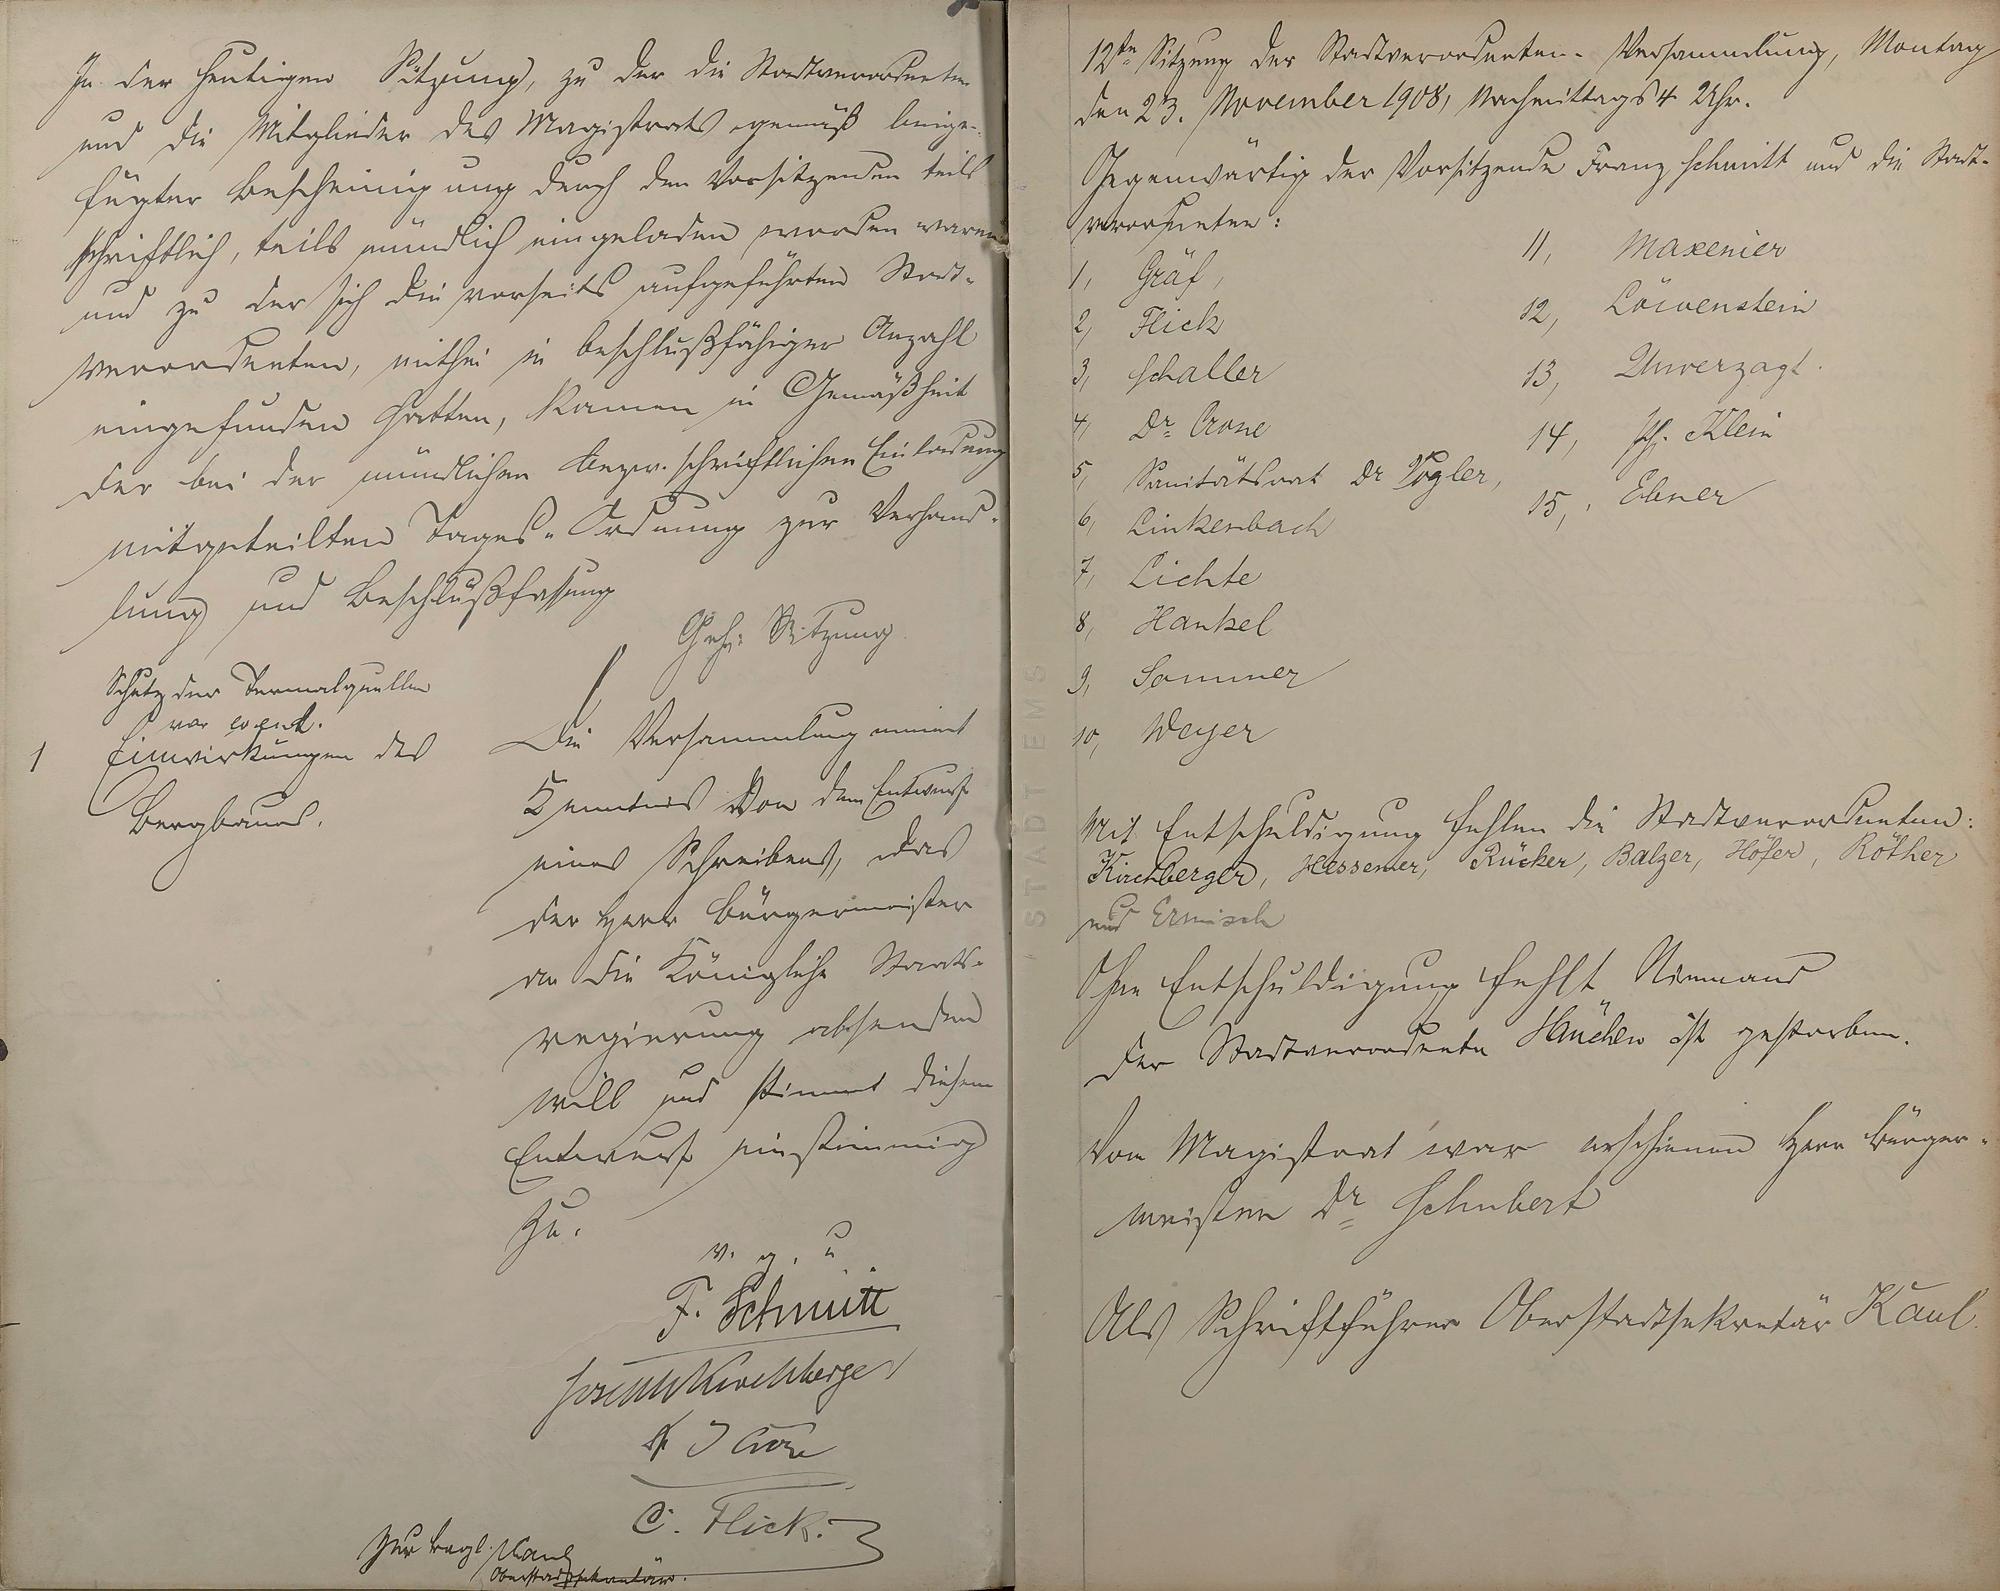 In der heutigen Sitzung, zu der die Stadtverordneten
und die Mitglieder des Magistrats gemäß beige-
fügter Bescheinigung durch den Vorsitzenden teils
schriftlich, teils mündlich eingeladen worden waren
und zu der sich die vorseits aufgeführten Stadt-
verordneten, mithin in beschlußfähiger Anzahl
eingefunden hatten, kamen in Gemäßheit
der bei der mündlichen bezw. schriftlichen Einladung
mitgeteilten Tages-Ordnung zur Verhand-
lung und Beschlußfassung
Geh. Sitzung
Schutz der Termalquellen
vor event.
1 Einwirkungen des
Bergbaues.
Die Versammlung nimmt
Kenntnis von dem Entwurf
eines Schreibens, das
der Herr Bürgermeister
an die Königliche Staats-
regierung absenden
will und stimmt diesem
Entwurf einstimmig
zu.
v. g. u.
F. Schmitt
Joseph Kirchberger
Dr J Crone
C. Flick.
Zur Begl. Kaul
Oberstadtsekretär.
12te Sitzung der Stadtverordneten-Versammlung, Montag
den 23. November 1908, Nachmittags 4 Uhr.
Gegenwärtig der Vorsitzende Franz Schmitt und die Stadt-
verordneten:
1, Gräf,
2, Flick
3, Schaller
4, Dr. Crone
5, Sanitätsrat Dr Vogler,
6, Linkenbach
7, Lichte
8, Hankel
9, Sommer
10, Weyer
11, Maxeiner
12, Löwenstein
13, Unverzagt.
14, Ph. Klein
15, Ebner
Mit Entschuldigung fehlen die Stadtverordneten:
Kirchberger, Hessemer, Rücker, Balzer, Höfer, Röther
und Ermisch
Ohne Entschuldigung fehlt Niemand
Der Stadtverordnete Hüchen ist gestorben.
Vom Magistrat war erschienen Herr Bürger-
meister Dr. Schubert
Als Schriftführer Oberstadtsekretär Kaul.
STADT EMS